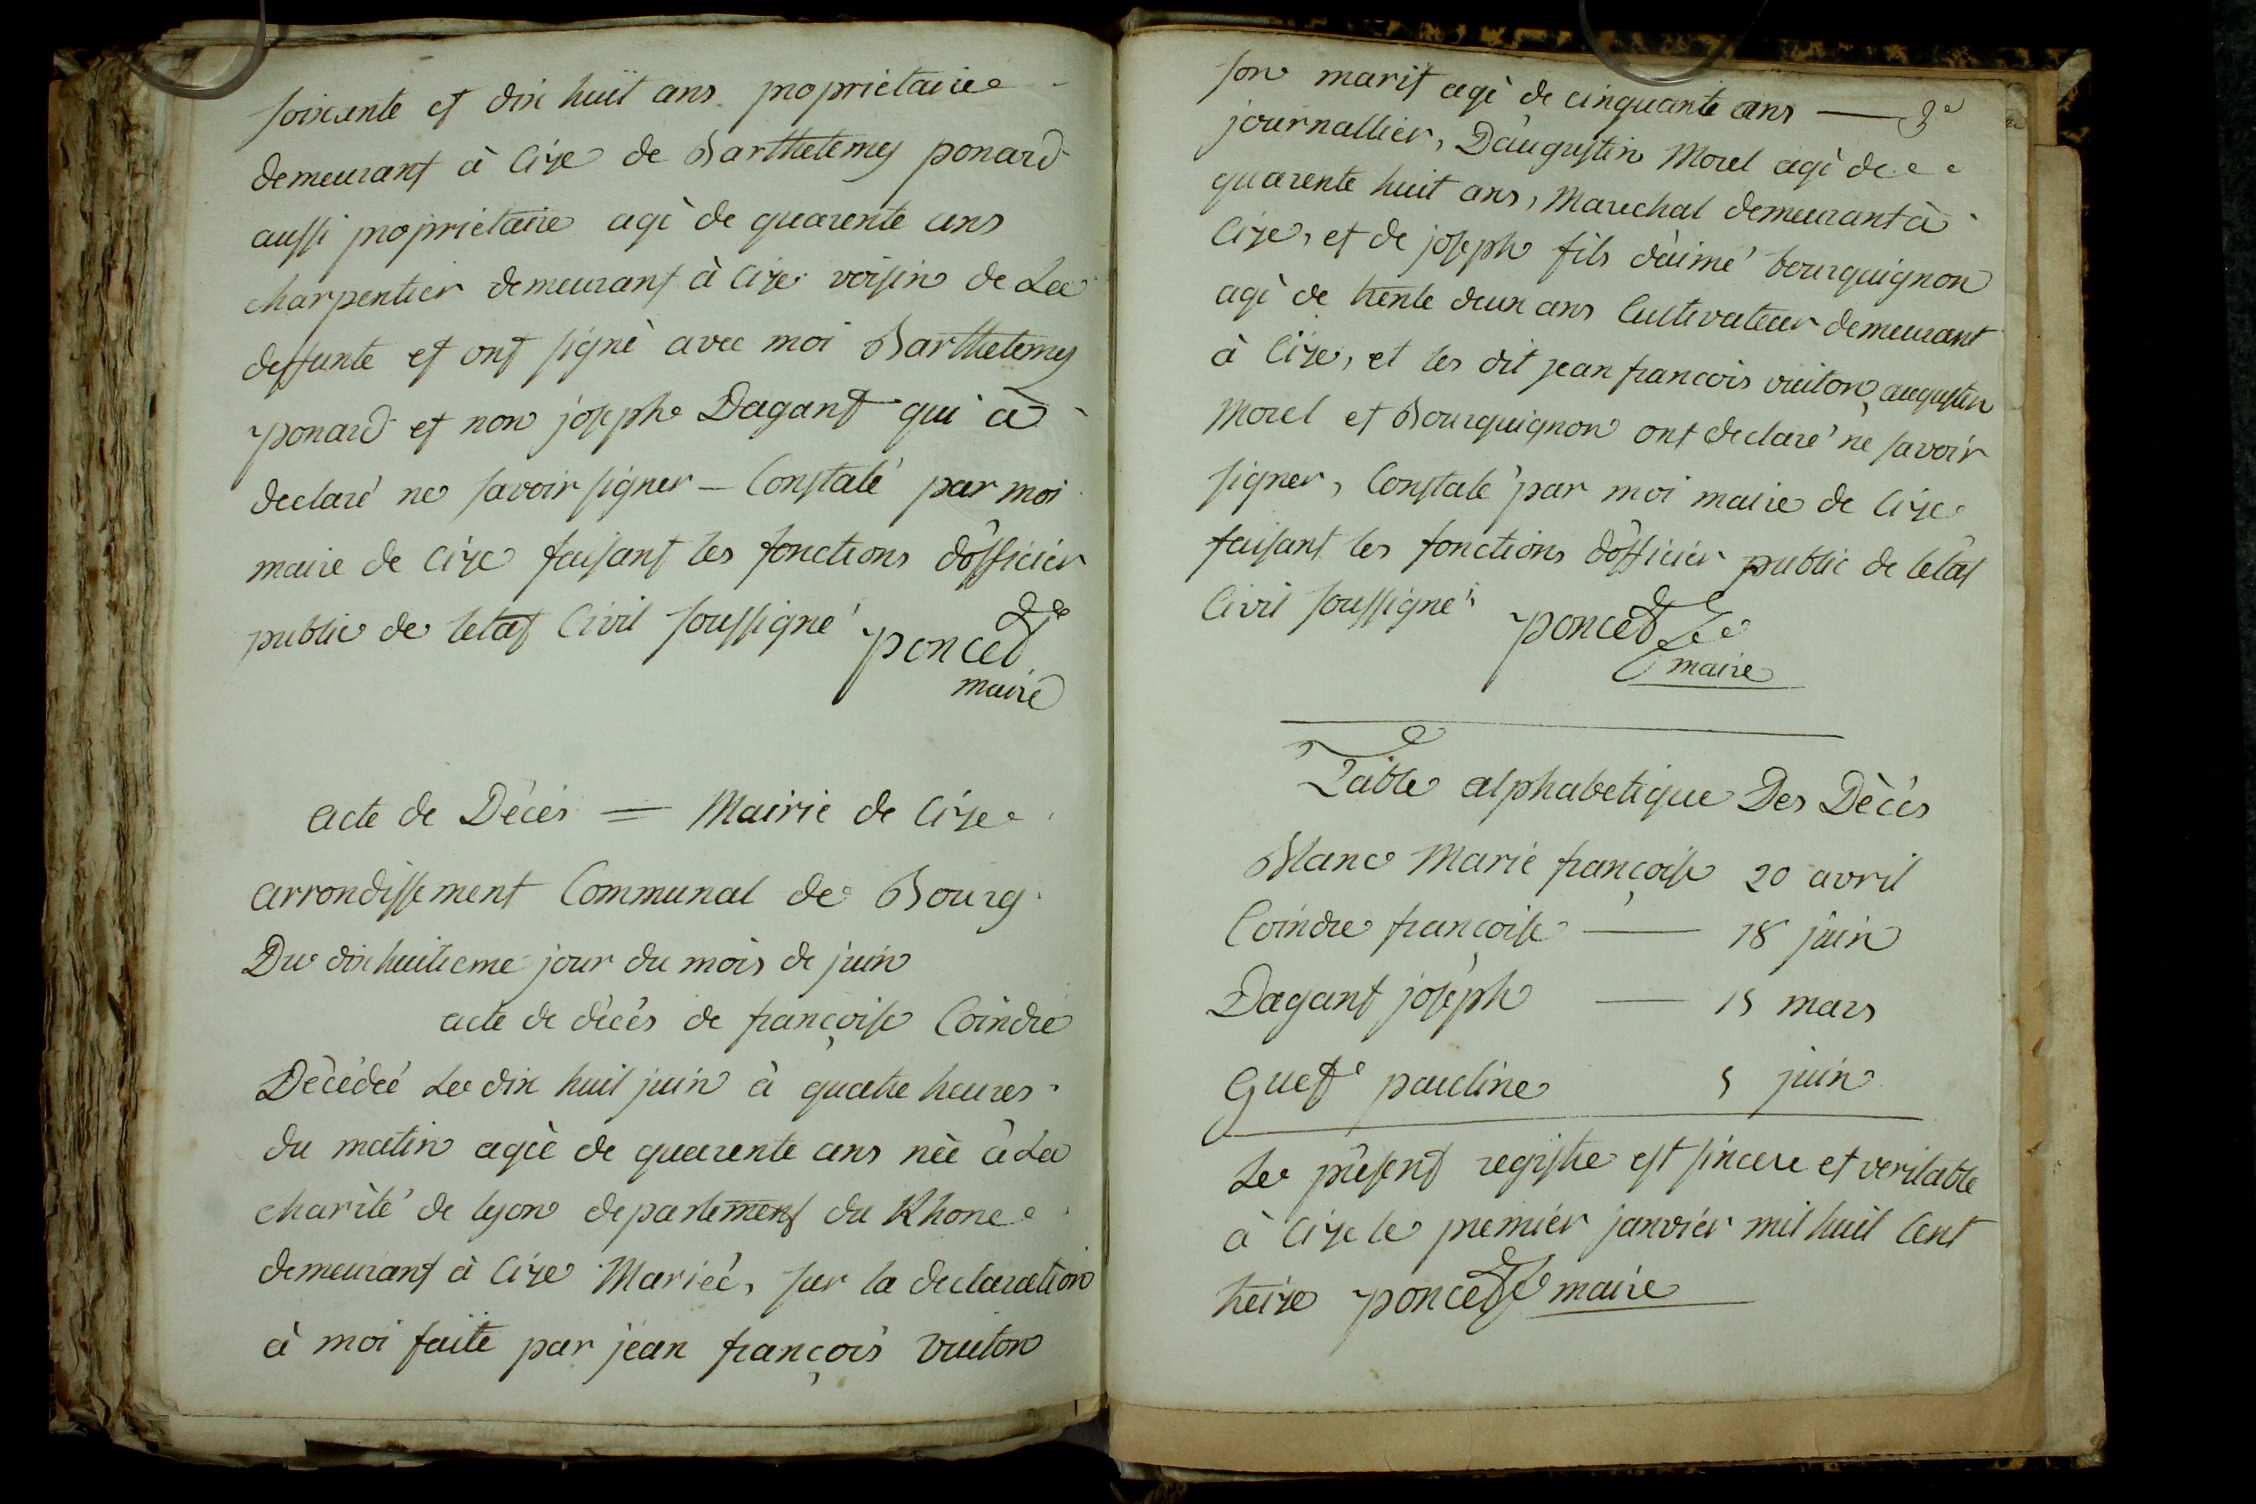 soixante et dix huit ans propriètaire
demeurant à Cize de Barthelemy ponard
aussi propriètaire agè de quarente ans
charpentier demeurant à Cize voisin de La
deffunte et ont signè avec moi Barthelemy
ponard et non joseph Dagant qui à
declaré ne savoir signer — Constaté par moi
maire de Cize faisant les fonctions d'officier
public de letat Civil soussigné poncet
maire
acte de Décés = Mairie de Cize
arrondissement Communal de Bourg
Du dix huitieme jour du mois de juin
acte de dècés de françoise Coindre
Dècèdeé Le dix huit juin à quatre heures
du matin agèe de quarente ans nèe à La
charité de lyon departement du Rhone
demeurant à Cize Marieé, sur la declaration
à moi faite par jean françois vuiton
son marit agè de cinquante ans —
journallier, D'augustin Morel agè de
quarente huit ans, Marechal demeurant à
Cize, et de joseph fils d'aimé bourguignon
agè de trente deux ans Cultivateur demeurant
à Cize, et les dit jean francois vuiton, augustin
Morel et Bourguignon ont declaré ne savoir
signer, Constaté par moi maire de Cize
faisant les fonctions d'officier public de letat
Civil soussigné poncet
maire
Table alphabetique Des Dècès
Blanc Marie françoise 20 avril
Coindre françoise — 18 juin
Dagant joseph — 15 mars
Guett pauline 5 juin
Le prèsent registre est sincere et veritable
à Cize le premier janvier mil huit Cent
treize poncet maire